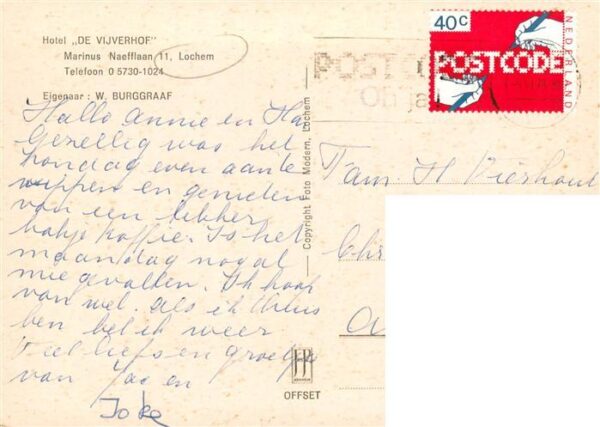 Hotel „DE VIJVERHOF"
Marinus Naefflaan 11, Lochem
Telefoon 0 5730-1024
Eigenaar : W. BURGGRAAF
Hallo Annie en Ha
Gezellig was het
zondag even aante
wippen en genieten
van een lekker
bakje koffie. Is het
maandag nogal
mee gevallen. Ik hoop
van wel. Als ik thuis
ben bel ik weer
Veel liefs en groetjes
van Jao en
Joke
Copyright Foto Modern, Lochem
OFFSET
40c
POSTCODE
NEDERLAND
POSTCODE
Fam. H Vierhout
Chr